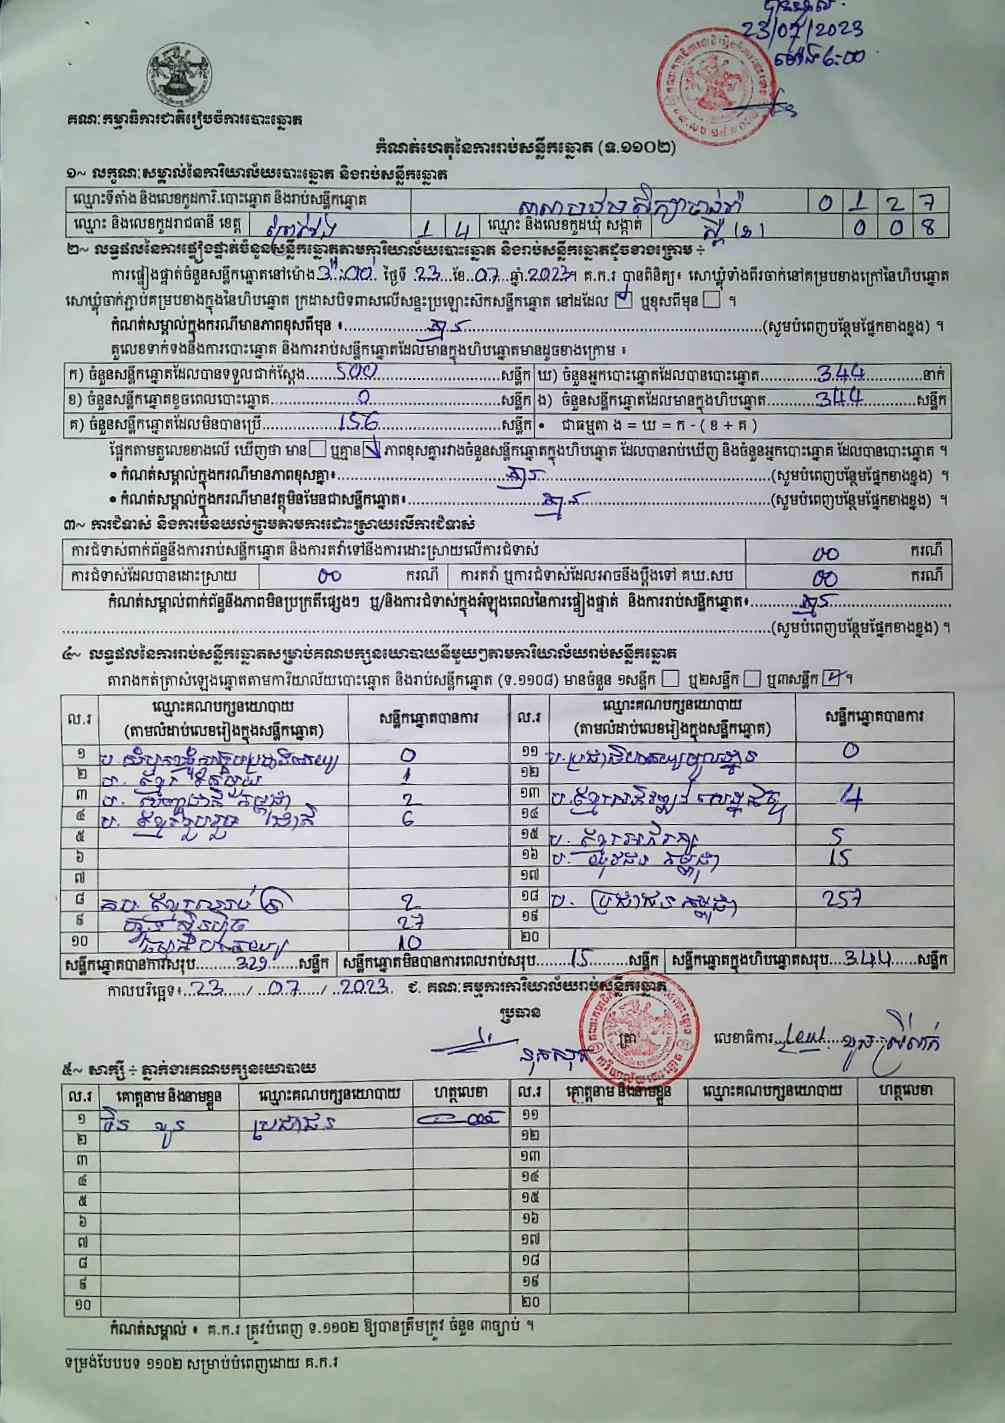 23/07/2023
ម៉ោង ៦:០០
គណៈកម្មាធិការជាតិរៀបចំការបោះឆ្នោត
កំណត់ហេតុនៃការរាប់សន្លឹកឆ្នោត (ទ.១១០២)
១~ លក្ខណៈសម្គាល់នៃការិយាល័យបោះឆ្នោត និងរាប់សន្លឹកឆ្នោត
ឈ្មោះទីតាំង និងលេខកូដការិ.បោះឆ្នោត និងរាប់សន្លឹកឆ្នោត 0 1 2 7
ឈ្មោះ និងលេខកូដរាជធានី ខេត្ត ព្រៃវែង 1 4 ឈ្មោះ និងលេខកូដឃុំ សង្កាត់ 0 0 8
២~ លទ្ធផលនៃការផ្ទៀងផ្ទាត់ចំនួនសន្លឹកឆ្នោតតាមការិយាល័យបោះឆ្នោត និងរាប់សន្លឹកឆ្នោតដូចខាងក្រោម ÷
ការផ្ទៀងផ្ទាត់ចំនួនសន្លឹកឆ្នោតនៅម៉ោង 3:00 ថ្ងៃទី 23 ខែ 07 ឆ្នាំ 2023។ គ.ក.រ បានពិនិត្យ៖ សោឃ្លុំទាំងពីរចាក់នៅគម្របខាងក្រៅនៃហិបឆ្នោត
សោឃ្លុំចាក់ភ្ជាប់គម្របខាងក្នុងនៃហិបឆ្នោត ក្រដាសបិទពាសលើសន្ទះប្រឡោះស៊កសន្លឹកឆ្នោត នៅដដែល ☑ ឬខុសពីមុន ☐ ។
កំណត់សម្គាល់ក្នុងករណីមានភាពខុសពីមុន ៖ គ្មាន (សូមបំពេញបន្ថែមផ្នែកខាងខ្នង) ។
តួលេខទាក់ទងនឹងការបោះឆ្នោត និងការរាប់សន្លឹកឆ្នោតដែលមានក្នុងហិបឆ្នោតមានដូចខាងក្រោម ៖
ក) ចំនួនសន្លឹកឆ្នោតដែលបានទទួលជាក់ស្តែង 500 សន្លឹក ឃ) ចំនួនអ្នកបោះឆ្នោតដែលបានបោះឆ្នោត 344 នាក់
ខ) ចំនួនសន្លឹកឆ្នោតខូចពេលបោះឆ្នោត 0 សន្លឹក ង) ចំនួនសន្លឹកឆ្នោតដែលមានក្នុងហិបឆ្នោត 344 សន្លឹក
គ) ចំនួនសន្លឹកឆ្នោតដែលមិនបានប្រើ 156 សន្លឹក • ជាធម្មតា ង = ឃ = ក - ( ខ + គ )
ផ្អែកតាមតួលេខខាងលើ ឃើញថា មាន ☐ ឬគ្មាន ☑ ភាពខុសគ្នារវាងចំនួនសន្លឹកឆ្នោតក្នុងហិបឆ្នោត ដែលបានរាប់ឃើញ និងចំនួនអ្នកបោះឆ្នោត ដែលបានបោះឆ្នោត ។
• កំណត់សម្គាល់ក្នុងករណីមានភាពខុសគ្នា៖ គ្មាន (សូមបំពេញបន្ថែមផ្នែកខាងខ្នង) ។
• កំណត់សម្គាល់ក្នុងករណីមានវត្ថុមិនមែនជាសន្លឹកឆ្នោត៖ គ្មាន (សូមបំពេញបន្ថែមផ្នែកខាងខ្នង) ។
៣~ ការជំទាស់ និងការមិនយល់ព្រមតាមការដោះស្រាយលើការជំទាស់
ការជំទាស់ពាក់ព័ន្ធនឹងការរាប់សន្លឹកឆ្នោត និងការតវ៉ាទៅនឹងការដោះស្រាយលើការជំទាស់ 00 ករណី
ការជំទាស់ដែលបានដោះស្រាយ 00 ករណី ការតវ៉ា ឬការជំទាស់ដែលអាចនឹងប្តឹងទៅ គឃ.សប 00 ករណី
កំណត់សម្គាល់ពាក់ព័ន្ធនឹងភាពមិនប្រក្រតីផ្សេងៗ ឬ/និងការជំទាស់ក្នុងអំឡុងពេលនៃការផ្ទៀងផ្ទាត់ និងការរាប់សន្លឹកឆ្នោត៖ គ្មាន
(សូមបំពេញបន្ថែមផ្នែកខាងខ្នង) ។
៤~ លទ្ធផលនៃការរាប់សន្លឹកឆ្នោតសម្រាប់គណបក្សនយោបាយនីមួយៗតាមការិយាល័យរាប់សន្លឹកឆ្នោត
តារាងកត់ត្រាសំឡេងឆ្នោតតាមការិយាល័យបោះឆ្នោត និងរាប់សន្លឹកឆ្នោត (ទ.១១០៨) មានចំនួន ១សន្លឹក ☐ ឬ២សន្លឹក ☐ ឬ៣សន្លឹក ☑ ។
ល.រ ឈ្មោះគណបក្សនយោបាយ (តាមលំដាប់លេខរៀងក្នុងសន្លឹកឆ្នោត) សន្លឹកឆ្នោតបានការ ល.រ ឈ្មោះគណបក្សនយោបាយ (តាមលំដាប់លេខរៀងក្នុងសន្លឹកឆ្នោត) សន្លឹកឆ្នោតបានការ
១ 0 ១១ 0
២ 1 ១២
៣ 2 ១៣ 4
៤ 6 ១៤
៥ ១៥ 5
៦ ១៦ ប. យុវជន កម្ពុជា 15
៧ ១៧
៨ 2 ១៨ ប. ប្រជាជន កម្ពុជា 257
៩ ហ្វ៊ុនស៊ិនប៉ិច 27 ១៩
១០ 10 ២០
សន្លឹកឆ្នោតបានការសរុប 329 សន្លឹក សន្លឹកឆ្នោតមិនបានការពេលរាប់សរុប 15 សន្លឹក សន្លឹកឆ្នោតក្នុងហិបឆ្នោតសរុប 344 សន្លឹក
កាលបរិច្ឆេទ៖ 23 / 07 / 2023 ជ. គណៈកម្មការការិយាល័យរាប់សន្លឹកឆ្នោត
ប្រធាន
ត្រា លេខាធិការ
៥~ សាក្សី ÷ ភ្នាក់ងារគណបក្សនយោបាយ
ល.រ គោត្តនាម និងនាមខ្លួន ឈ្មោះគណបក្សនយោបាយ ហត្ថលេខា ល.រ គោត្តនាម និងនាមខ្លួន ឈ្មោះគណបក្សនយោបាយ ហត្ថលេខា
១ ប្រជាជន ១១
២ ១២
៣ ១៣
៤ ១៤
៥ ១៥
៦ ១៦
៧ ១៧
៨ ១៨
៩ ១៩
១០ ២០
កំណត់សម្គាល់ ៖ គ.ក.រ ត្រូវបំពេញ ទ.១១០២ ឱ្យបានត្រឹមត្រូវ ចំនួន ៣ច្បាប់ ។
ទម្រង់បែបបទ ១១០២ សម្រាប់បំពេញដោយ គ.ក.រ